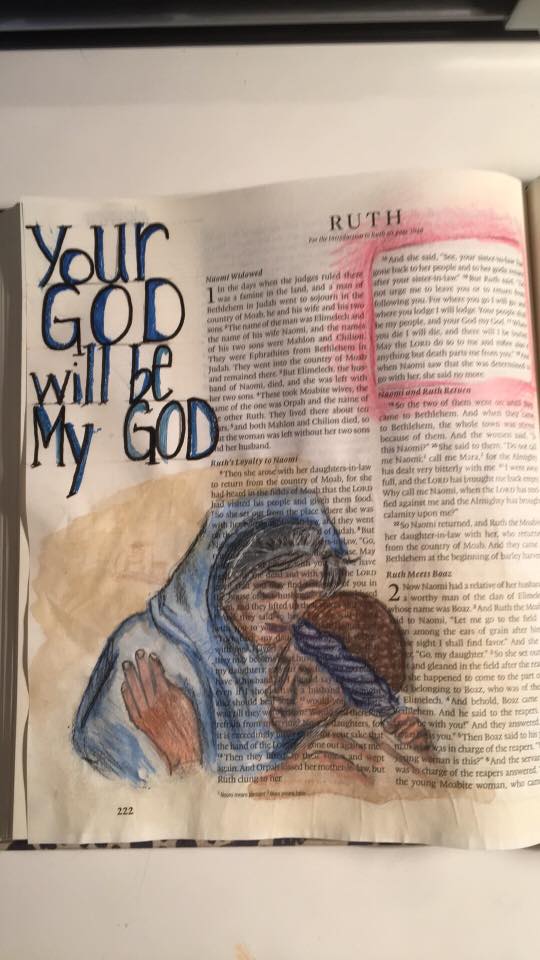 Your
GOD
will be
My GOD
RUTH
For the Introduction to Ruth
Naomi Widowed
1 In the days when the judges ruled there
was a famine in the land, and a man of
Bethlehem in Judah went to sojourn in the
country of Moab, he and his wife and his two
sons. ²The name of the man was Elimelech and
the name of his wife Naomi, and the names
of his two sons were Mahlon and Chilion.
They were Ephrathites from Bethlehem in
Judah. They went into the country of Moab
and remained there. ³But Elimelech, the hus-
band of Naomi, died, and she was left with
her two sons. ⁴These took Moabite wives; the
name of the one was Orpah and the name of
the other Ruth. They lived there about ten
years, ⁵and both Mahlon and Chilion died, so
that the woman was left without her two sons
and her husband.
Ruth's Loyalty to Naomi
⁶Then she arose with her daughters-in-law
to return from the country of Moab, for she
had heard in the fields of Moab that the LORD
had visited his people and given them food.
⁷So she set out from the place where she was
with her
they went
of Judah. ⁸But
law, "Go,
May
have
the LORD
you in
and they lifted up
they said
my daughters
have a husband
even if I should a husband
and should be
till they were
refrain from daughters, for
it is exceedingly for your sake that
the hand of the LORD gone out against me."
¹⁴Then they lifted up their voices and wept
again. And Orpah kissed her mother-in-law, but
Ruth clung to her.
222
¹⁵And she said, "See, your sister-in-law has
gone back to her people and to her gods;
after your sister-in-law." ¹⁶But Ruth said,
not urge me to leave you or to return from
following you. For where you go I will go, and
where you lodge I will lodge. Your people shall
be my people, and your God my God. ¹⁷Where
you die I will die, and there will I be buried.
May the LORD do so to me and more also if
anything but death parts me from you."
when Naomi saw that she was determined to
go with her, she said no more.
Naomi and Ruth Return
¹⁹So the two of them went on until they
came to Bethlehem. And when they came
to Bethlehem, the whole town was stirred
because of them. And the women said, "Is
this Naomi?" ²⁰She said to them, "Do not call
me Naomi; call me Mara, for the Almighty
has dealt very bitterly with me. ²¹I went away
full, and the LORD has brought me back empty.
Why call me Naomi, when the LORD has testi-
fied against me and the Almighty has brought
calamity upon me?"
²²So Naomi returned, and Ruth the Moabite
her daughter-in-law with her, who returned
from the country of Moab. And they came to
Bethlehem at the beginning of barley harvest.
Ruth Meets Boaz
2 Now Naomi had a relative of her husband's,
a worthy man of the clan of Elimelech,
whose name was Boaz. ²And Ruth the Moabite
said to Naomi, "Let me go to the field
among the ears of grain after him
sight I shall find favor." And she
"Go, my daughter." ³So she set out
and gleaned in the field after the
she happened to come to the part of
belonging to Boaz, who was of the
Elimelech. ⁴And behold, Boaz came
Bethlehem. And he said to the reapers,
with you!" And they answered,
you." ⁵Then Boaz said to his
was in charge of the reapers,
young woman is this?" ⁶And the servant
was in charge of the reapers answered,
the young Moabite woman, who came